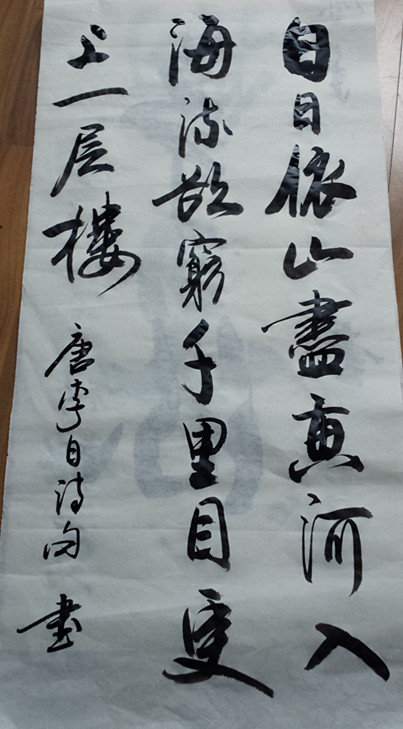 白日依山盡黄河入
海流欲窮千里目更
上一层樓
唐李白诗句 書